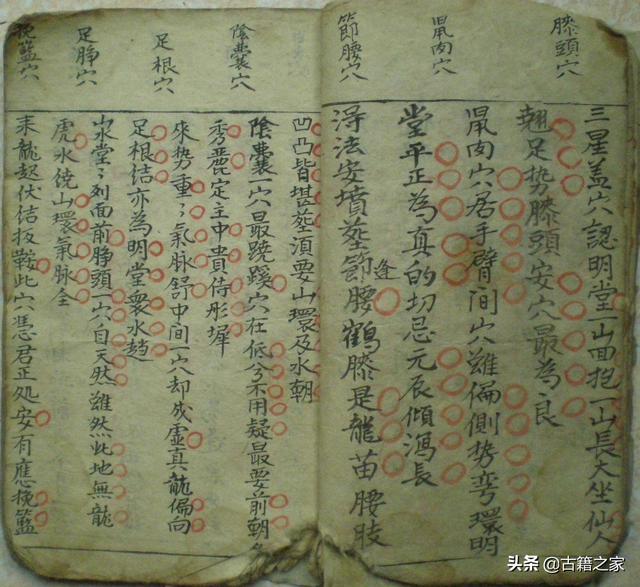 膝頭穴
鼠肉穴
節腰穴
三星盖穴認明堂山面抱一山長大坐仙人
翹足势膝頭安穴最為良
鼠肉穴居手臂间穴雖偏側势彎環明
堂平正為真的切忌元辰傾瀉長
逢
得法安墳塟節腰鶴膝是龍苗腰肢
陰囊穴
足根穴
足脖穴
挽籃穴
凹凸皆堪塟須要山環及水朝
陰囊一穴最蹺蹊穴在低兮不用疑最要前朝
秀麗定主中貴侍彤墀
來势重〻氣脉舒中間一穴却成虛真龍偏向
足根结亦為明堂衆水趋
山水堂〻列面前脖頭一穴自天然雖然此地無龍
虎水繞山環氣脉全
来龍起伏结扳鞍此穴憑君正処安有應挽籃
头条@古籍之家